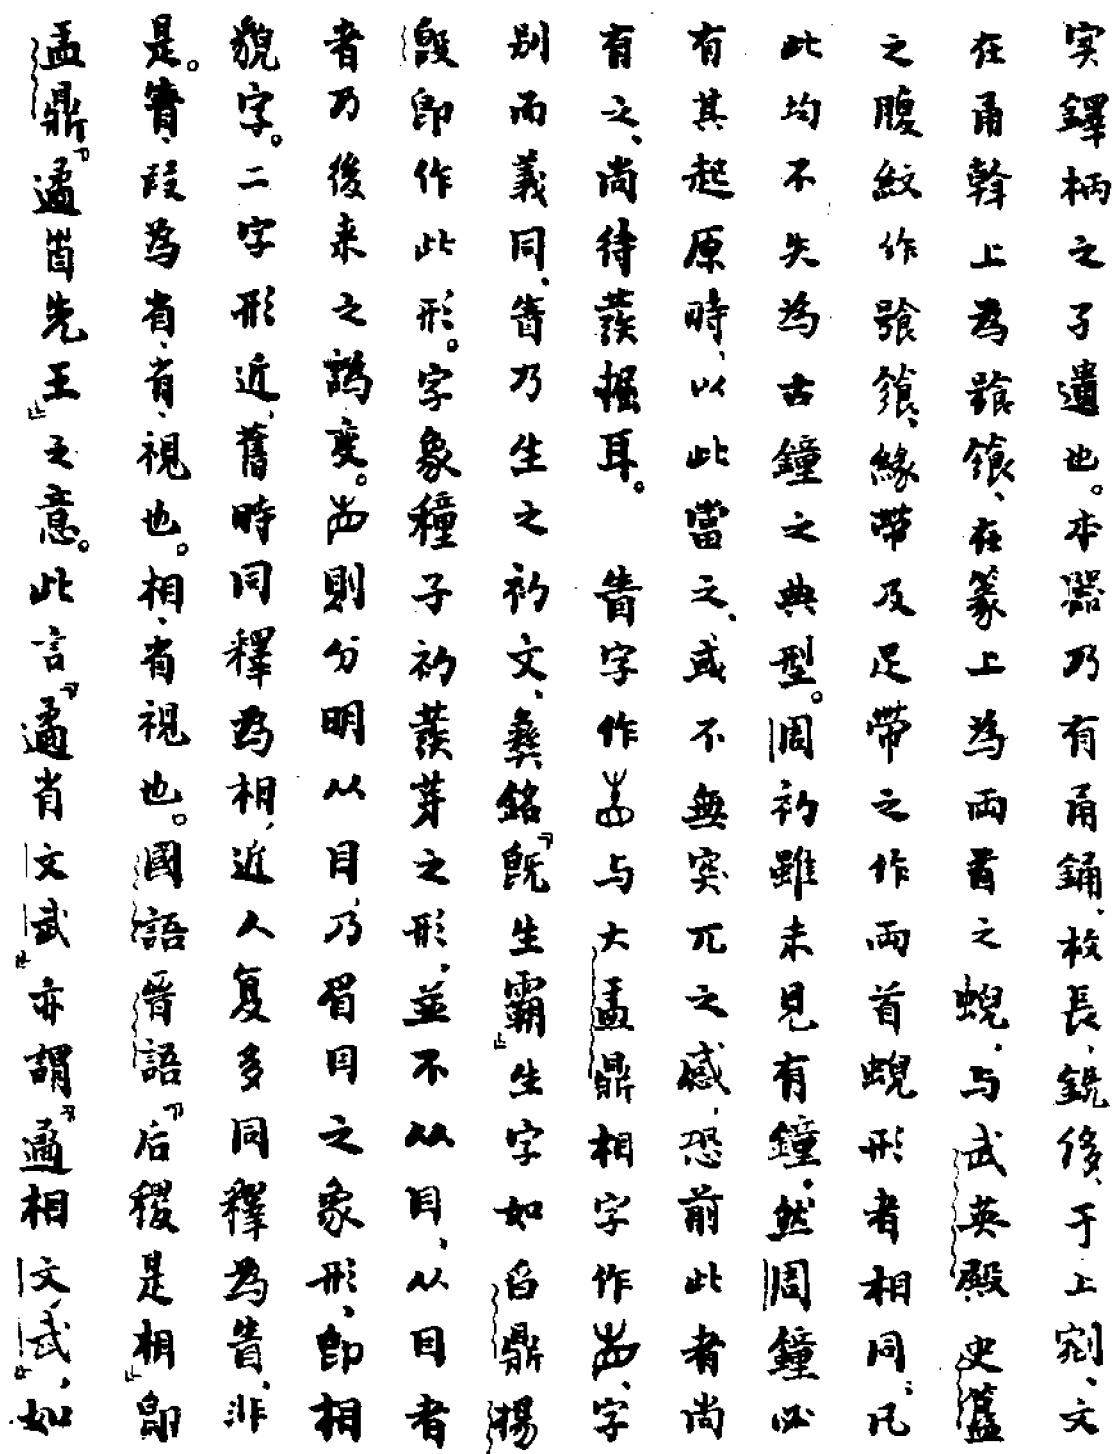 实鐸柄之孑遺也。本器乃有甬鋪、枚長、銑侈、于上剜、文
在甬斡上為饕餮、在篆上為兩首之蜺,与武英殿史簋
之腹紋作饕餮、緣帶及足帶之作兩首蜺形者相同;凡
此均不失為古鐘之典型。周初雖未見有鐘,然周鐘必
有其起原時,以此當之、或不無突兀之感,恐前此者尚
有之、尚待發掘耳。 眚字作与大盂鼎相字作、字
别而義同、眚乃生之初文、彝銘『既生霸』生字如鼎揚
𣪘即作此形。字象種子初發芽之形,並不从目、从目者
者乃後来之譌變。則分明从目,乃眉目之象形、即相
貌字。二字形近,舊時同釋為相,近人复多同釋為眚,非
是。眚、叚為省,省、視也。相、省視也。國語晋語『后稷是相』即
盂鼎『遹眚先王』之意。此言『遹省文武』亦謂『遹相文武』,如